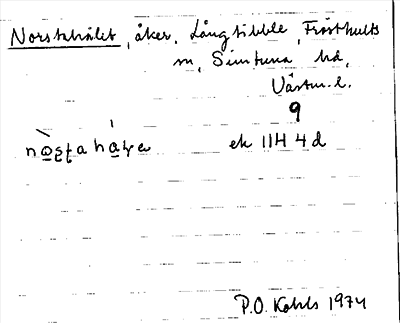 Norsthålet, åker, Långtibble, Frösthults
sn, Simtuna hd,
Västm. l.
9
ek 11H 4 d
P.O. Kohls 1974